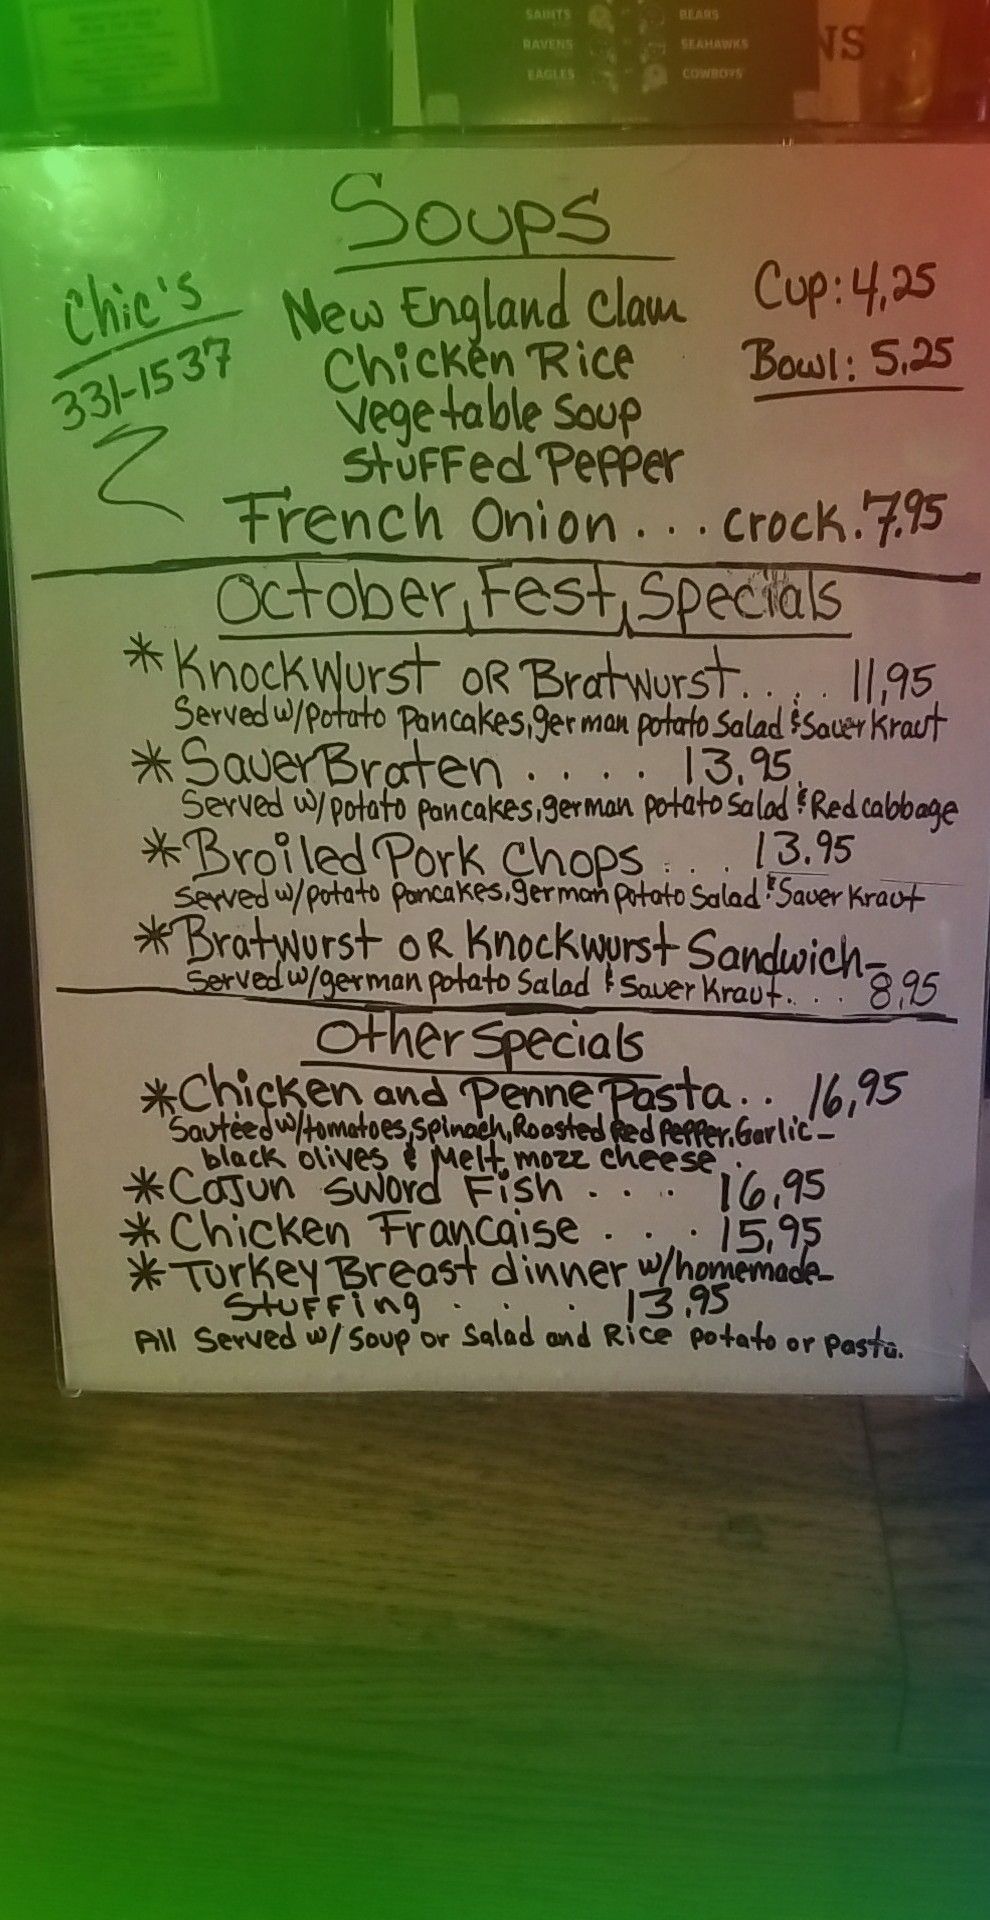 SAINTS BEARS
RAVENS SEAHAWKS
EAGLES COWBOYS
NS
Soups
Chic's
331-1537
New England Clam
Chicken Rice
Vegetable Soup
Stuffed Pepper
Cup: 4,25
Bowl: 5,25
French Onion... crock. 7.95
October, Fest, Specials
*Knockwurst OR Bratwurst.... 11,95
Served w/potato pancakes, german potato salad & Sauer Kraut
*SauerBraten.... 13.95
Served w/potato pancakes, german potato Salad & Red cabbage
*Broiled Pork Chops... 13.95
Served w/potato pancakes, german potato Salad & Sauer Kraut
*Bratwurst OR Knockwurst Sandwich-
Served w/german potato Salad & Sauer Kraut.... 8,95
Other Specials
*Chicken and Penne Pasta.. 16,95
Sautéed w/tomatoes, Spinach, Roasted Red Pepper, Garlic-
black olives & Melt, mozz cheese.
*Cajun Sword Fish.... 16,95
*Chicken Francaise... 15,95
*Turkey Breast dinner w/homemade-
Stuffing... 13,95
All Served w/Soup or Salad and Rice potato or pasta.